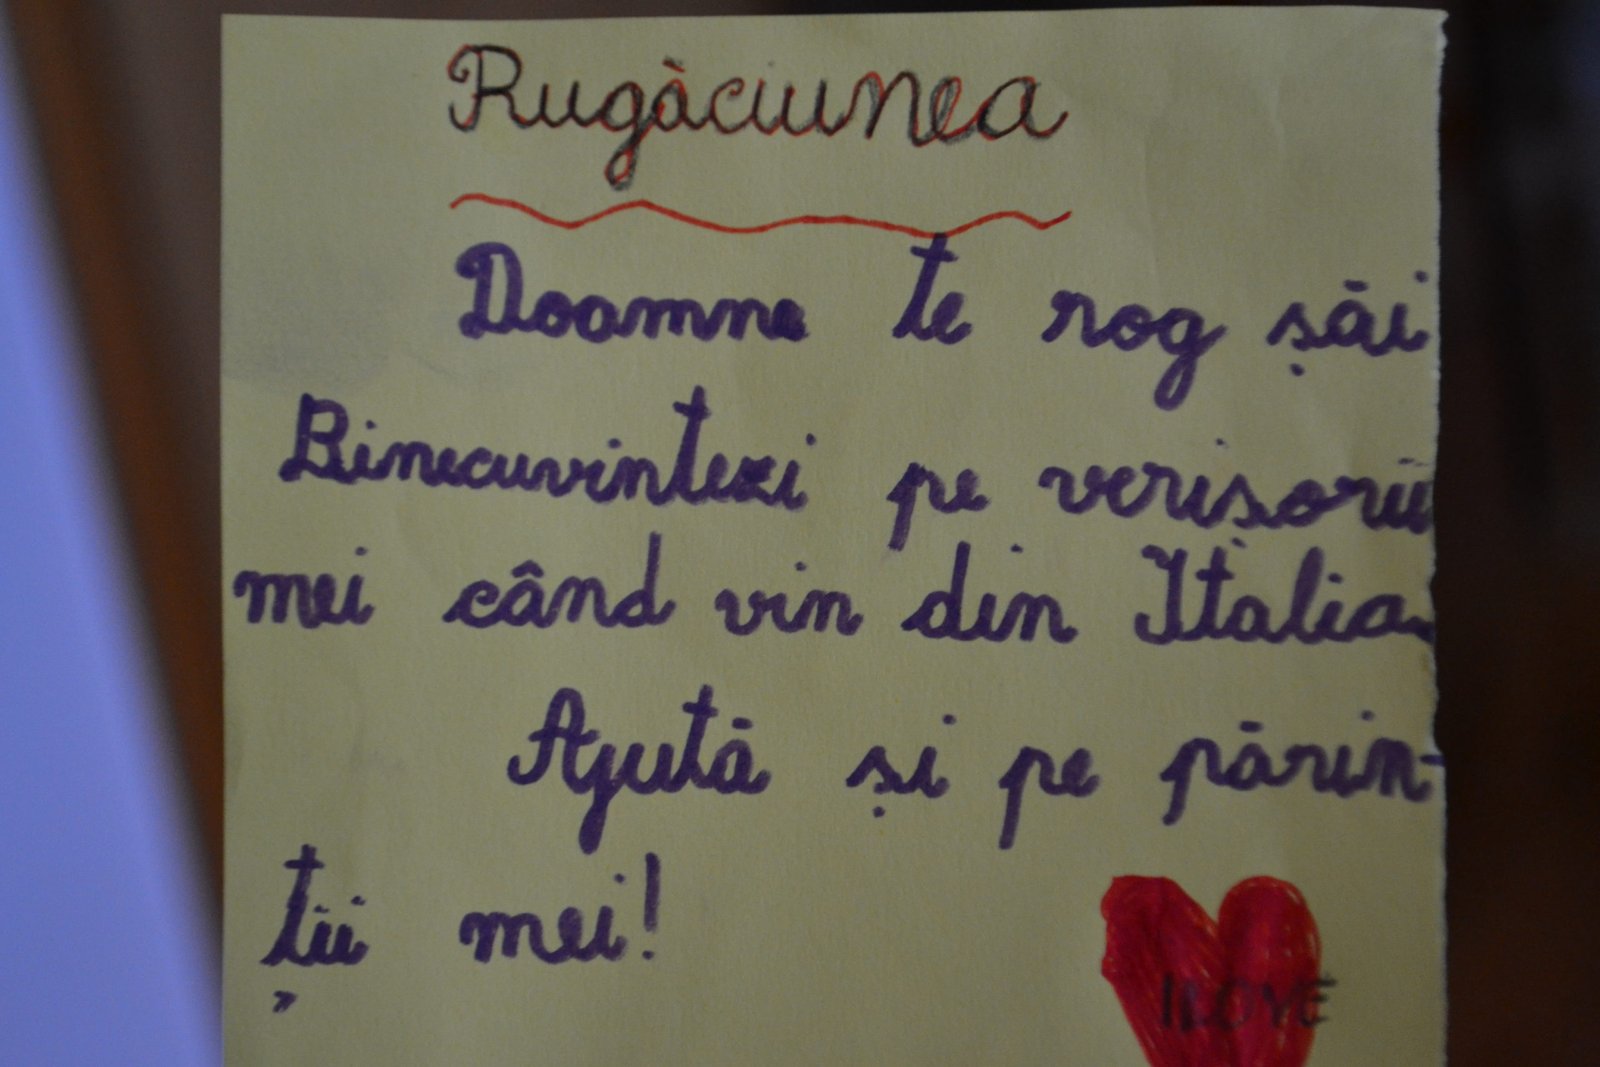 Rugàciunea
Doamne te rog săi
Binecuvintezi pe verișorii
mei când vin din Italia.
Ajută și pe părin-
ții mei!
I LOVE